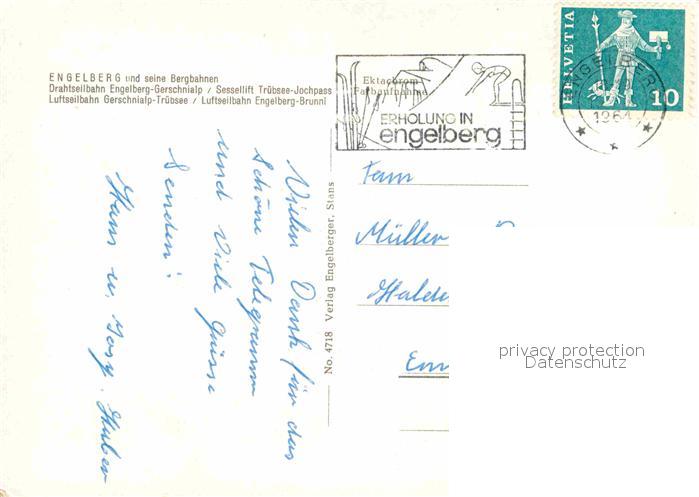 ENGELBERG und seine Bergbahnen
Drahtseilbahn Engelberg-Gerschnialp / Sessellift Trübsee-Jochpass
Luftseilbahn Gerschnialp-Trübsee / Luftseilbahn Engelberg-Brunni
Ektachrom
Farbaufnahme
ERHOLUNG IN
engelberg
HELVETIA
10
ENGELBERG
1964
Vielen Dank für das
schöne Telegramm
und viele Grüsse
senden:
Hans u. Rosy. Huber
No. 4718 Verlag Engelberger, Stans
Fam
Müller
Halde
Em
privacy protection
Datenschutz